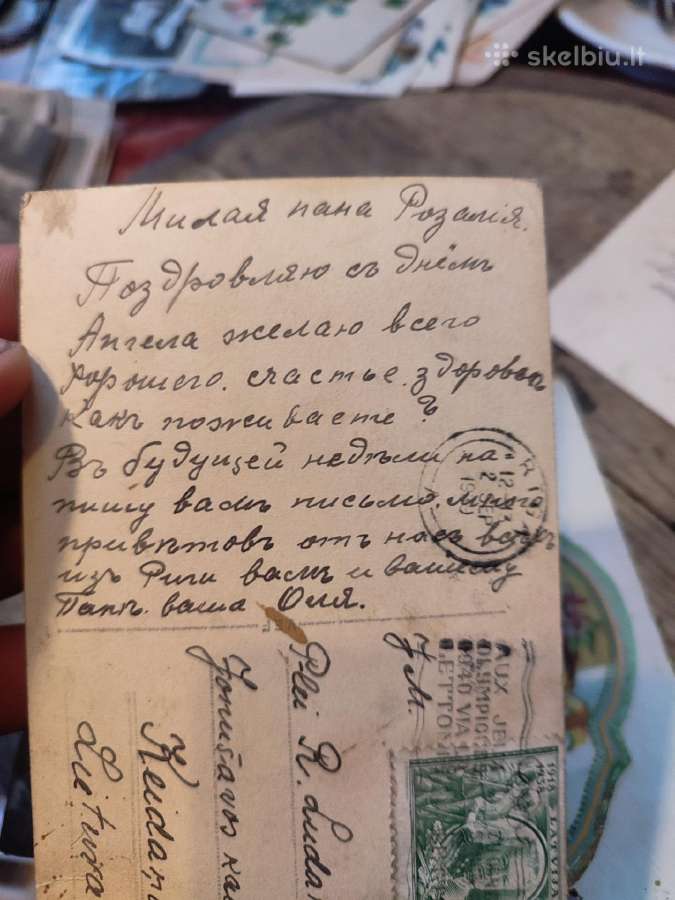 skelbiu.lt
Милая пана Розалія.
Поздровляю съ днёмъ
Ангела желаю всего
хорошего. счастье. здоровья
Какъ поживаете?
Въ будущей недѣли на-
пишу вамъ письмо. много
привѣтовъ отъ насъ всѣхъ
изъ Риги вамъ и вашему
Папѣ. ваша Оля.
RIGA
12
2 SEP
19
AUX JEUX
OLYMPIQUES
1940 VIA
LETTONIE
J. M.
Plei R.
Jonušavos
Lietuva
1918
1938
LATVIJA